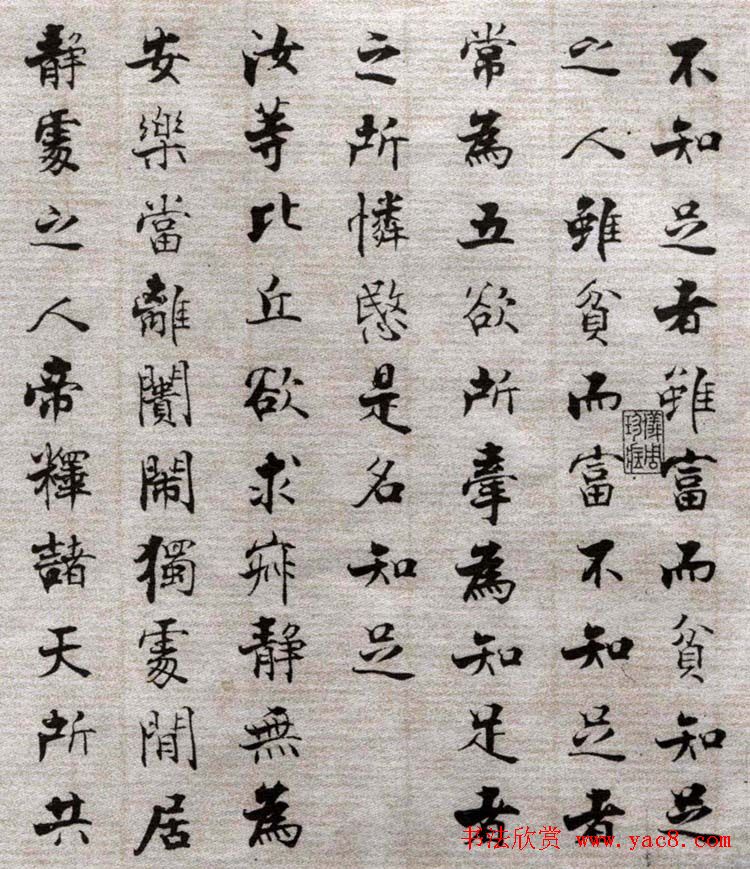 不知足者雖富而貧知足
之人雖貧而富不知足者
常為五欲所牽為知足者
之所憐愍是名知足
汝等比丘欲求寂静無為
安樂當離闠閙獨處閒居
静處之人帝釋諸天所共
儀周珍藏
书法欣赏 www.yac8.com